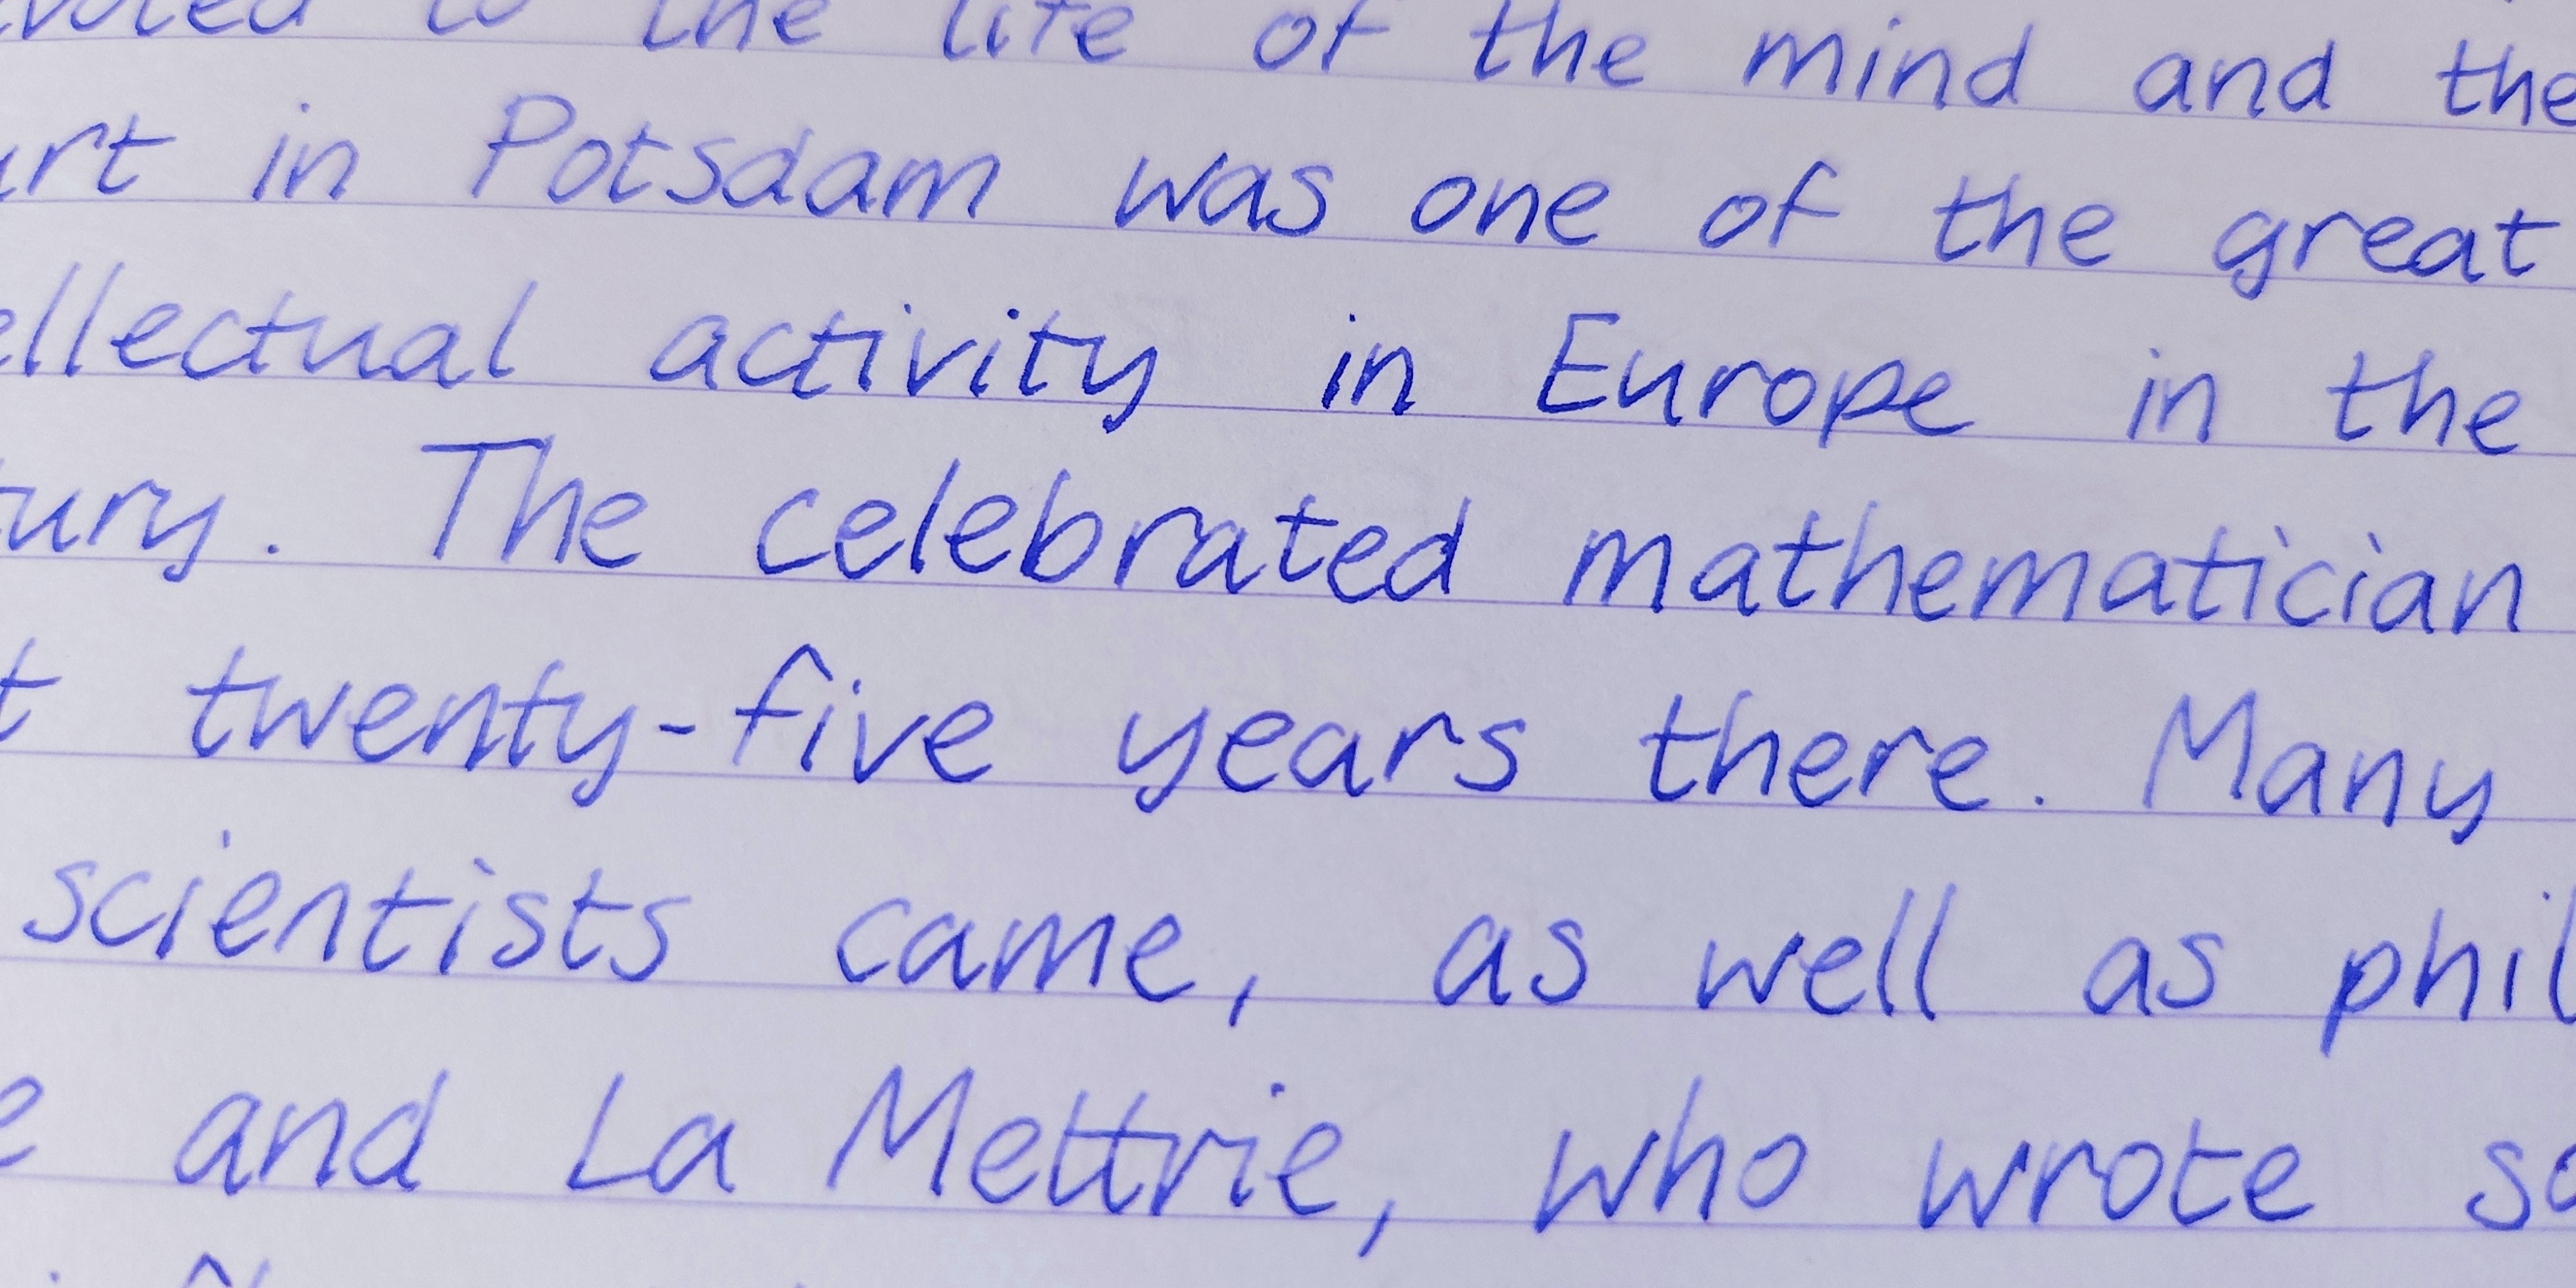 to the life of the mind and the
in Potsdam was one of the great
activity in Europe in the
The celebrated mathematician
twenty-five years there. Many
scientists came, as well as
and La Mettrie, who wrote